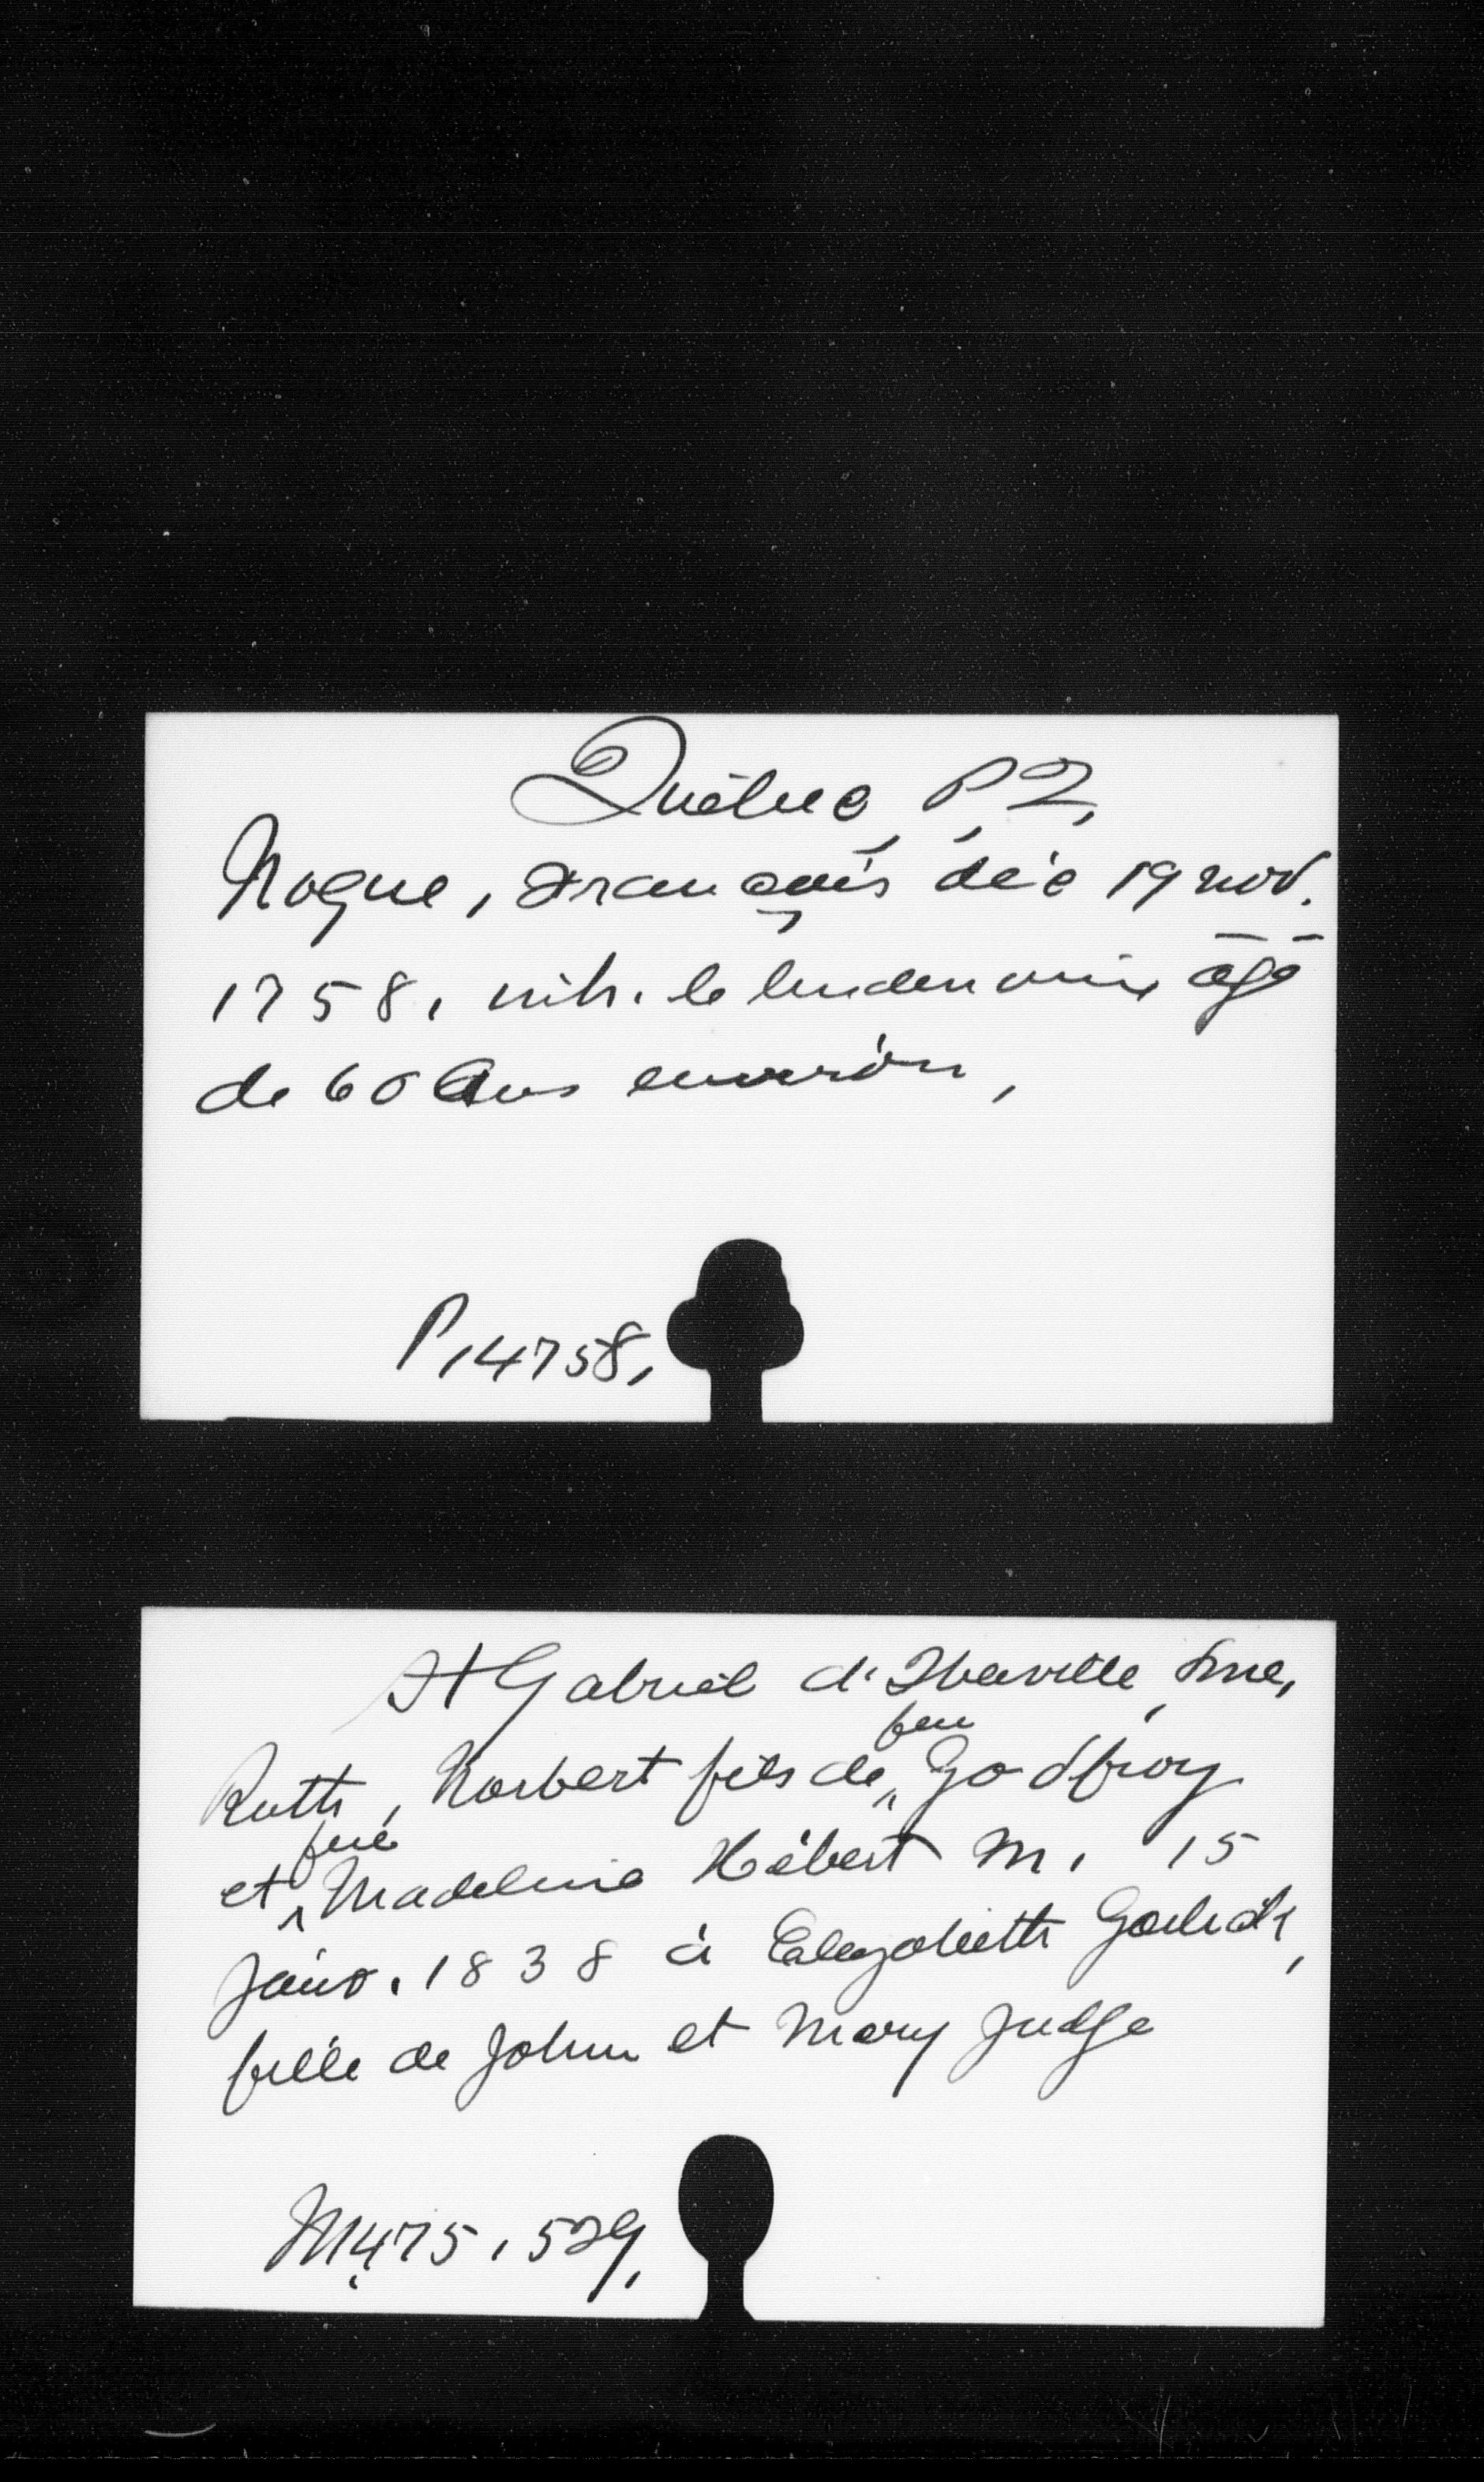 Québec, P.Q.
Nogue, François déc 19 nov.
1758, inh. le lendemain âgé
de 60 Ans environ,
P, 14758,
St Gabriel d'Iberville,
feu
Ruth, Norbert fils de ^ Godfroy
feue
et ^ Madeleine Hébert m. 15
Janv. 1838 à Elizabeth
fille de John et Mary Judge
M475, 529,